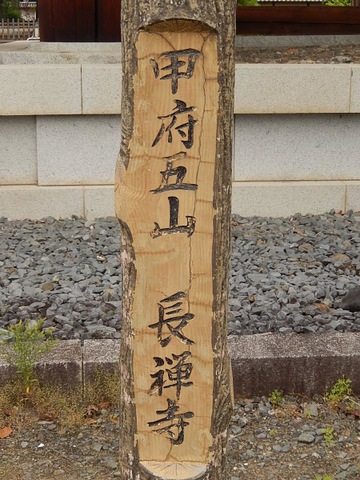 甲府五山 長禅寺